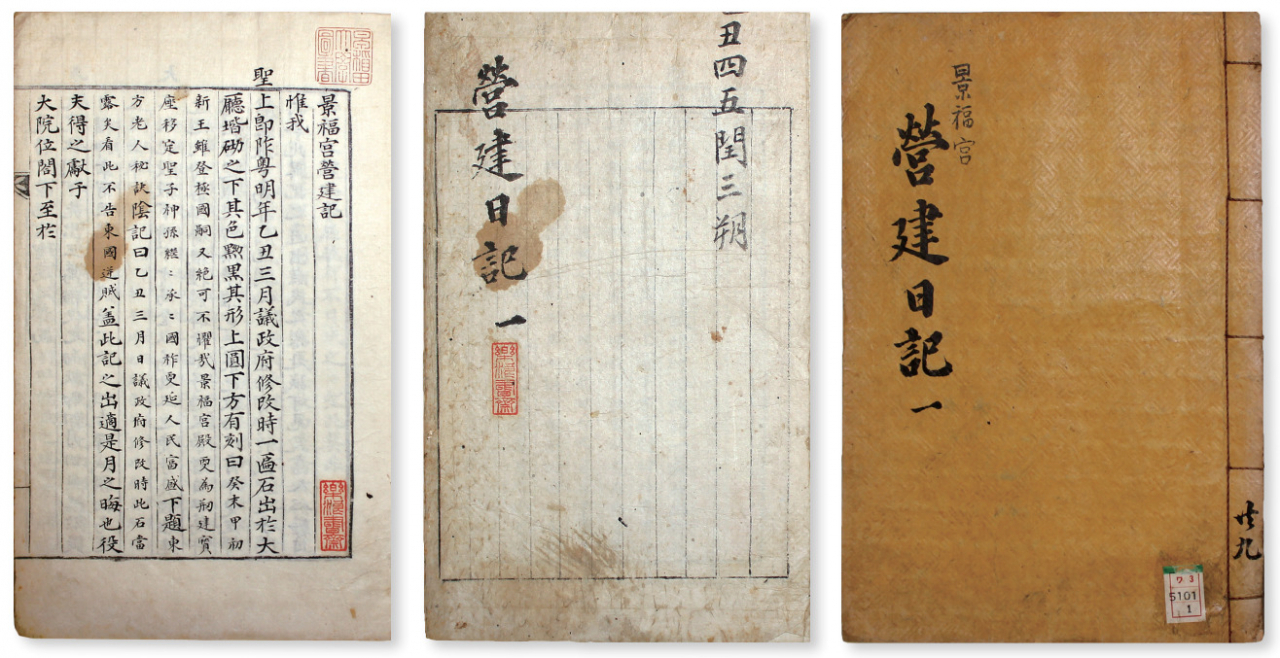 景福宮
營建日記 一
共九
ワ 3
5101
1
丑四五閏三朔
營建日記 一
樂浪書齋
景福宮營建記
惟我
聖上卽阼粤明年乙丑三月議政府修改時一匾石出於大
廳堦砌之下其色黝黑其形上圓下方有刻曰癸末甲初
新王雖登極國嗣又絶可不懼哉景福宮殿更為刱建寳
座移定聖子神孫繼〻承〻國祚更延人民富盛下題東
方老人秘訣陰記曰乙丑三月日議政府修改時此石當
露矣看此不告東國逆賊盖此記之出適是月之晦也役
夫得之獻于
大院位閤下至於
樂浪書齋